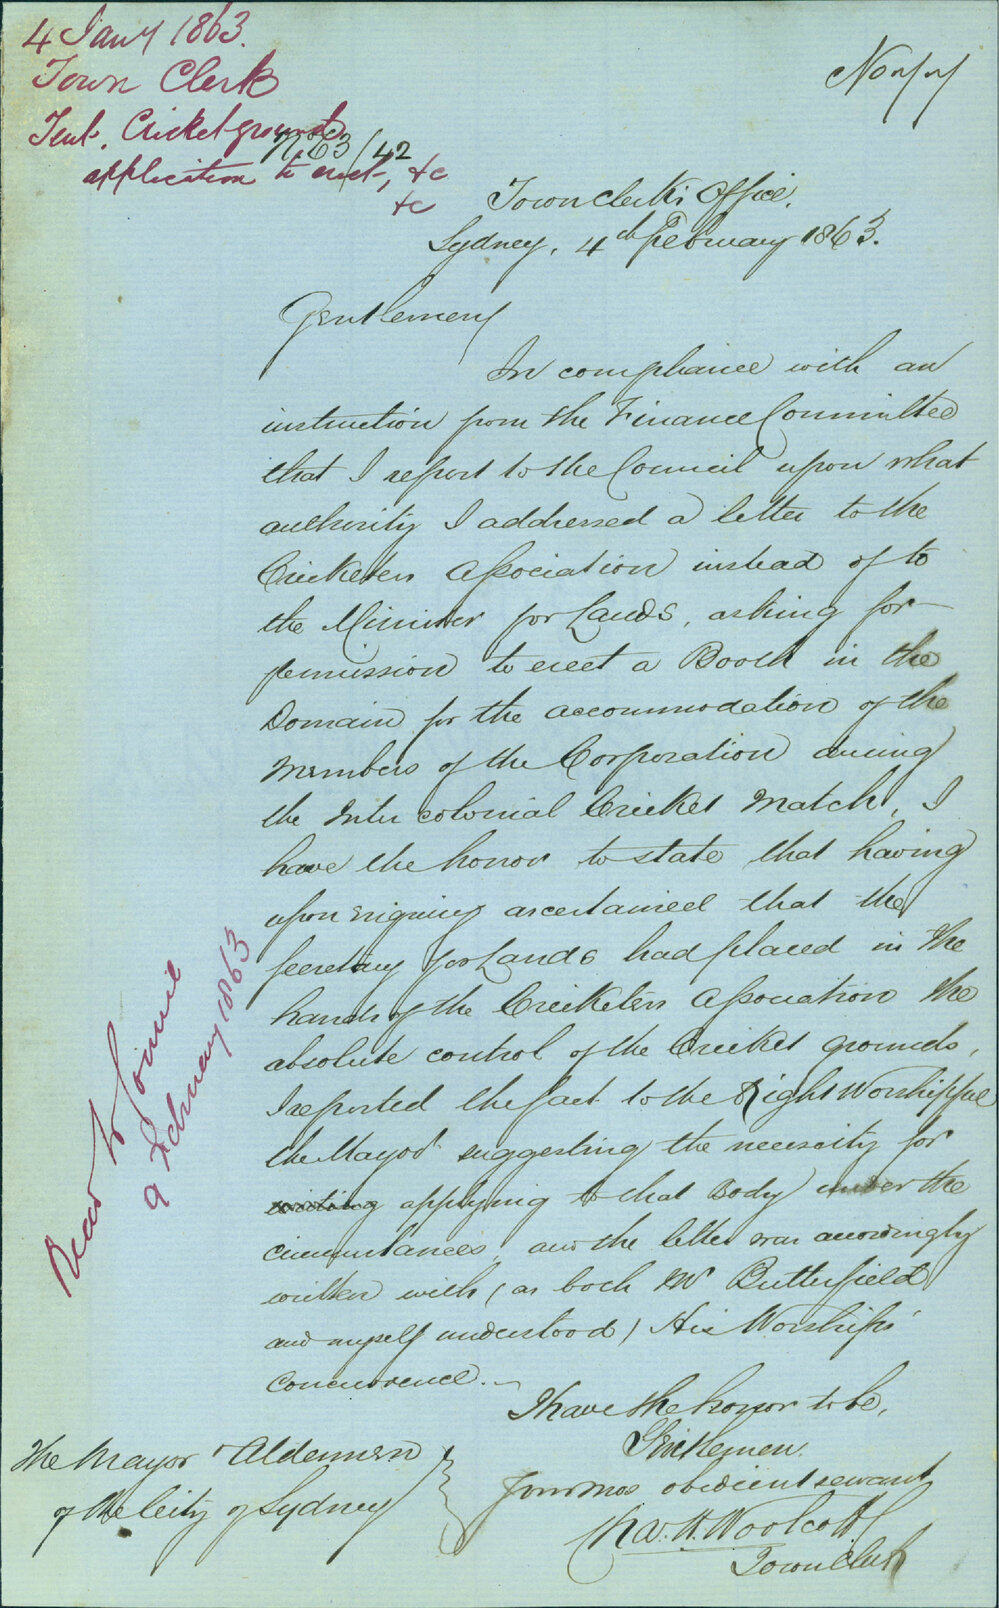 4 Jany 1863.
Town Clerk
Tent, Cricket ground,
application to erect, &c
&c
N 63/42
Town Clerk's Office,
Sydney, 4th February 1863.
Gentlemen
In compliance with an
instruction from the Finance Committee
that I report to the Council upon what
authority I addressed a letter to the
Cricketers Association instead of to
the Minister for Lands, asking for
permission to erect a Booth in the
Domain for the accommodation of the
Members of the Corporation during
the Inter colonial Cricket Match, I
have the honor to state that having
upon enquiry ascertained that the
Secretary for Lands had placed in the
hands of the Cricketers Association the
absolute control of the Cricket grounds,
I reported the fact to the Right Worshipful
the Mayor suggesting the necessity for
writing applying to that Body under the
circumstances, and the letter was accordingly
written with (as both Mr Butterfield
and myself understood) His Worships'
concurrence.
I have the honor to be,
Gentlemen
Your most obedient servant
Chas. H. Woolcott
Town Clerk
The Mayor & Aldermen
of the City of Sydney
Read to Council
9 February 1863